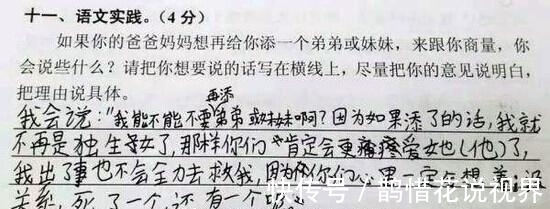 十一、语文实践。(4分)
如果你的爸爸妈妈想再给你添一个弟弟或妹妹,来跟你商量,你
会说些什么?请把你想要说的话写在横线上,尽量把你的意见说明白,
把理由说具体。
再添
我会说:“我能不能不要弟弟或妹妹啊?因为如果添了的话,我就
不再是独生子女了,那样你们肯定会更疼爱她(他)了,
我出了事也不会全力去救我,因为你们心里一定在想着:没
关系,死了一个,还有一个
快传号/鹊惜花说视界